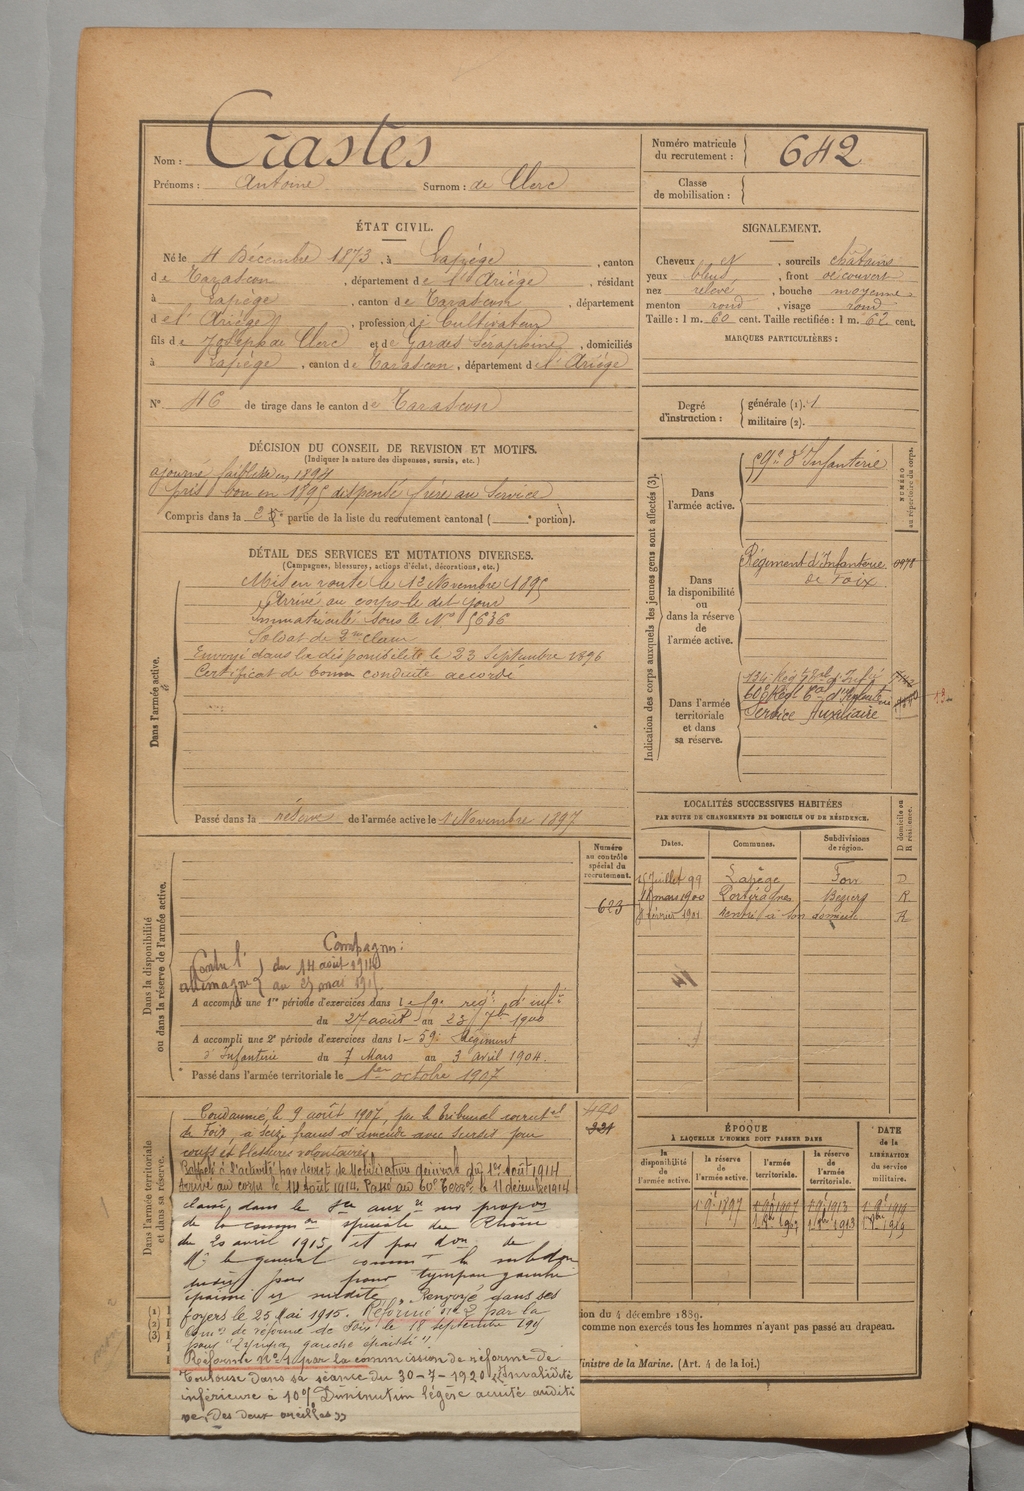 Nom : Crastes
Prénoms : Antoine Surnom : de Clerc
Numéro matricule du recrutement : 642
Classe de mobilisation :
ÉTAT CIVIL.
Né le 4 Décembre 1873, à Lapège, canton
de Tarascon, département de l'Ariège, résidant
à Lapège, canton de Tarascon, département
de l'Ariège, profession de Cultivateur
fils de Joseph de Clerc et de Gardes Séraphine, domiciliés
à Lapège, canton de Tarascon, département de l'Ariège
N° 46 de tirage dans le canton de Tarascon
SIGNALEMENT.
Cheveux N, sourcils châtains
yeux bleus, front découvert
nez relevé, bouche moyenne
menton rond, visage rond
Taille : 1 m. 60 cent. Taille rectifiée : 1 m. 62 cent.
MARQUES PARTICULIÈRES :
Degré d'instruction : générale (1). 1
militaire (2).
DÉCISION DU CONSEIL DE REVISION ET MOTIFS.
(Indiquer la nature des dispenses, sursis, etc.)
ajourné faiblesse en 1894
pris bon en 1895 dispensé frère au Service
Compris dans la 2e partie de la liste du recrutement cantonal ( e portion).
DÉTAIL DES SERVICES ET MUTATIONS DIVERSES.
(Campagnes, blessures, actions d'éclat, décorations, etc.)
Dans l'armée active.
Mis en route le 12 Novembre 1895
Arrivé au corps le dit jour
Immatriculé sous le N° 5636
Soldat de 2me classe
Envoyé dans la disponibilité le 23 Septembre 1896
Certificat de bonne conduite accordé
Passé dans la réserve de l'armée active le 1 Novembre 1897
Indication des corps auxquels les jeunes gens sont affectés (3).
NUMÉRO au répertoire du corps.
Dans l'armée active.
59e d'Infanterie
Dans la disponibilité ou dans la réserve de l'armée active.
Régiment d'Infanterie 0978
de Foix
Dans l'armée territoriale et dans sa réserve.
134 Rég
60e Régt d'Infanterie
Service Auxiliaire
LOCALITÉS SUCCESSIVES HABITÉES
PAR SUITE DE CHANGEMENTS DE DOMICILE OU DE RÉSIDENCE.
D domicile ou R résidence.
Dates. Communes. Subdivisions de région.
15 Juillet 99 Lapège Foix D
18 mars 1900 Portiragnes Béziers R
8 février 1901 rentré à son domicile R
Dans la disponibilité ou dans la réserve de l'armée active.
Numéro au contrôle spécial du recrutement.
623
Campagnes :
Contre l'allemagne du 14 août 1914
au 25 mai 1915
A accompli une 1re période d'exercices dans le 59e régt d'infie
du 27 août au 23 7bre 1900
A accompli une 2e période d'exercices dans le 59e Régiment
d'Infanterie du 7 Mars au 3 avril 1904.
Passé dans l'armée territoriale le 1er octobre 1907
Dans l'armée territoriale et dans sa réserve.
490
221
Condamné le 9 août 1907, par le tribunal correctel
de Foix, à seize francs d'amende avec sursis pour
coups et blessures volontaires.
Rappelé à l'activité par décret de Mobilisation générale du 1er Août 1914
Arrivé au corps le 14 Août 1914. Passé au 60e Terr. le 11 décembre 1914
classé dans le sce auxre sur propon
de la common spéciale du Rhône
du 20 avril 1915 et par don de
Mr le général comm la subdon
pour tympan gauche
épaissi et surdité. Renvoyé dans ses
foyers le 25 Mai 1915. Réformé n° 2 par la
Comon de réforme de Foix le 18 septembre 191
pour "Tympan gauche épaissi"
Réformé N° 1 par la commission de réforme de
Toulouse dans sa séance du 30-7-1920 "Invalidité
inférieure à 10% Diminution légère acuité auditi
ve, des deux oreilles"
ÉPOQUE
À LAQUELLE L'HOMME DOIT PASSER DANS
DATE de la LIBÉRATION du service militaire.
la disponibilité de l'armée active. la réserve de l'armée active. l'armée territoriale. la réserve de l'armée territoriale.
1 9e 1897
(1)
(2)
(3)
tion du 4 décembre 1889.
comme non exercés tous les hommes n'ayant pas passé au drapeau.
Ministre de la Marine. (Art. 4 de la loi.)